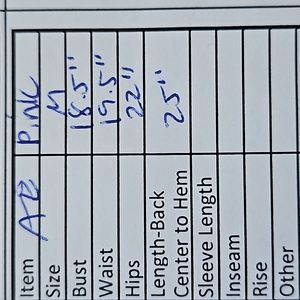 Item AE Pink
Size M
Bust 18.5"
Waist 19.5"
Hips 22"
Length-Back
Center to Hem 25"
Sleeve Length
Inseam
Rise
Other